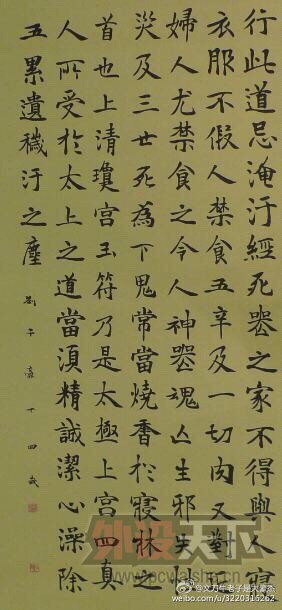 行此道忌淹汙經死喪之家不得與人寢
衣服不假人禁食五辛及一切肉又對近
婦人尤禁食之令人神喪魂亡生邪失性
災及三世死為下鬼常當燒香於寢牀之
首也上清瓊宮玉符乃是太極上宮四真
人所受於太上之道當須精誠潔心澡除
五累遺穢汙之塵
劉子豪十四歲
外设天下
weibo.com/u/3220316262